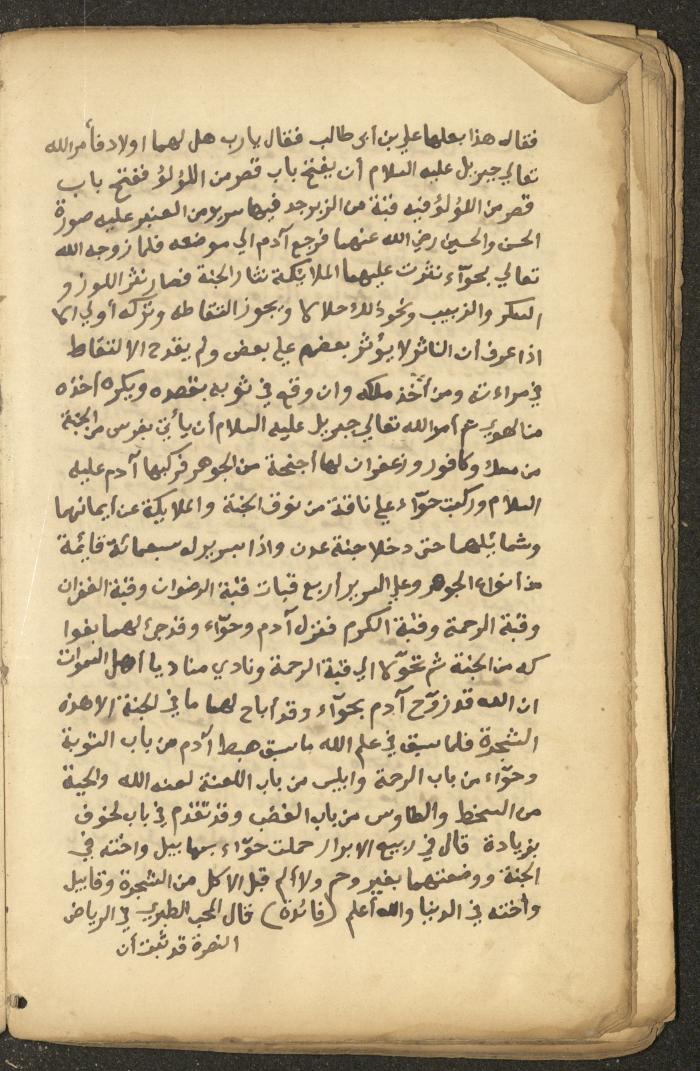 فقال هذا بعلها علي بن أبي طالب فقال يارب هل لهما اولاد فأمر الله
تعالي جبريل عليه السلام أن يفتح باب قصر من اللؤلؤ ففتح باب
قصر من اللؤلؤ فيه قبة من الزبرجد فيها سرير من العنبر عليه صورة
الحسن والحسين رضي الله عنهما فرجع آدم الي موضعه فلما زوجه الله
تعالي بحوآء نثرت عليهما الملايكة نثار الجنة فصار نثر اللوز و
السكر والزبيب ونحو ذلك حلالا ويجوز التقاطه وتركه أولي الا
اذا عرف أن الناثر لا يؤثر بعضهم علي بعض ولم يقدح الالتقاط
في مراءته ومن أخذ ملكه وان وقع في ثوبه بقصده ويكره أخذه
من الهوي ثم أمر الله تعالي جبريل عليه السلام أن يأتي بفرس من الجنة
من مسك وكافور وزعفران لها أجنحة من الجوهر فركبها آدم عليه
السلام وركبت حوآء علي ناقة من نوق الجنة والملايكة عن أيمانهما
وشمائلهما حتى دخلا جنة عدن واذا بسرير له سبعمائة قايمة
من أنواع الجوهر وعلي السرير أربع قباب قبة الرضوان وقبة الغفران
وقبة الرحمة وقبة الكرم فنزل آدم وحوآء وقد جئ لهما بفوا
كه من الجنة ثم تحولا الي قبة الرحمة ونادي مناد يا أهل السموات
ان الله قد زوج آدم بحوآء وقد أباح لهما ما في الجنة الا هذه
الشجرة فلما سبق في علم الله ما سبق هبط آدم من باب التوبة
وحوآء من باب الرحمة وابليس من باب اللعنة لعنه الله والحية
من السخط والطاوس من باب الغضب وقد تقدم في باب الخوف
بزيادة قال في ربيع الابرار حملت حوآء بهابيل واخته في
الجنة ووضعتهما بغير وحم ولا ألم قبل الاكل من الشجرة وقابيل
وأخته في الدنيا والله أعلم (فائدة) قال المحب الطبري في الرياض
النضرة قد ثبت أن